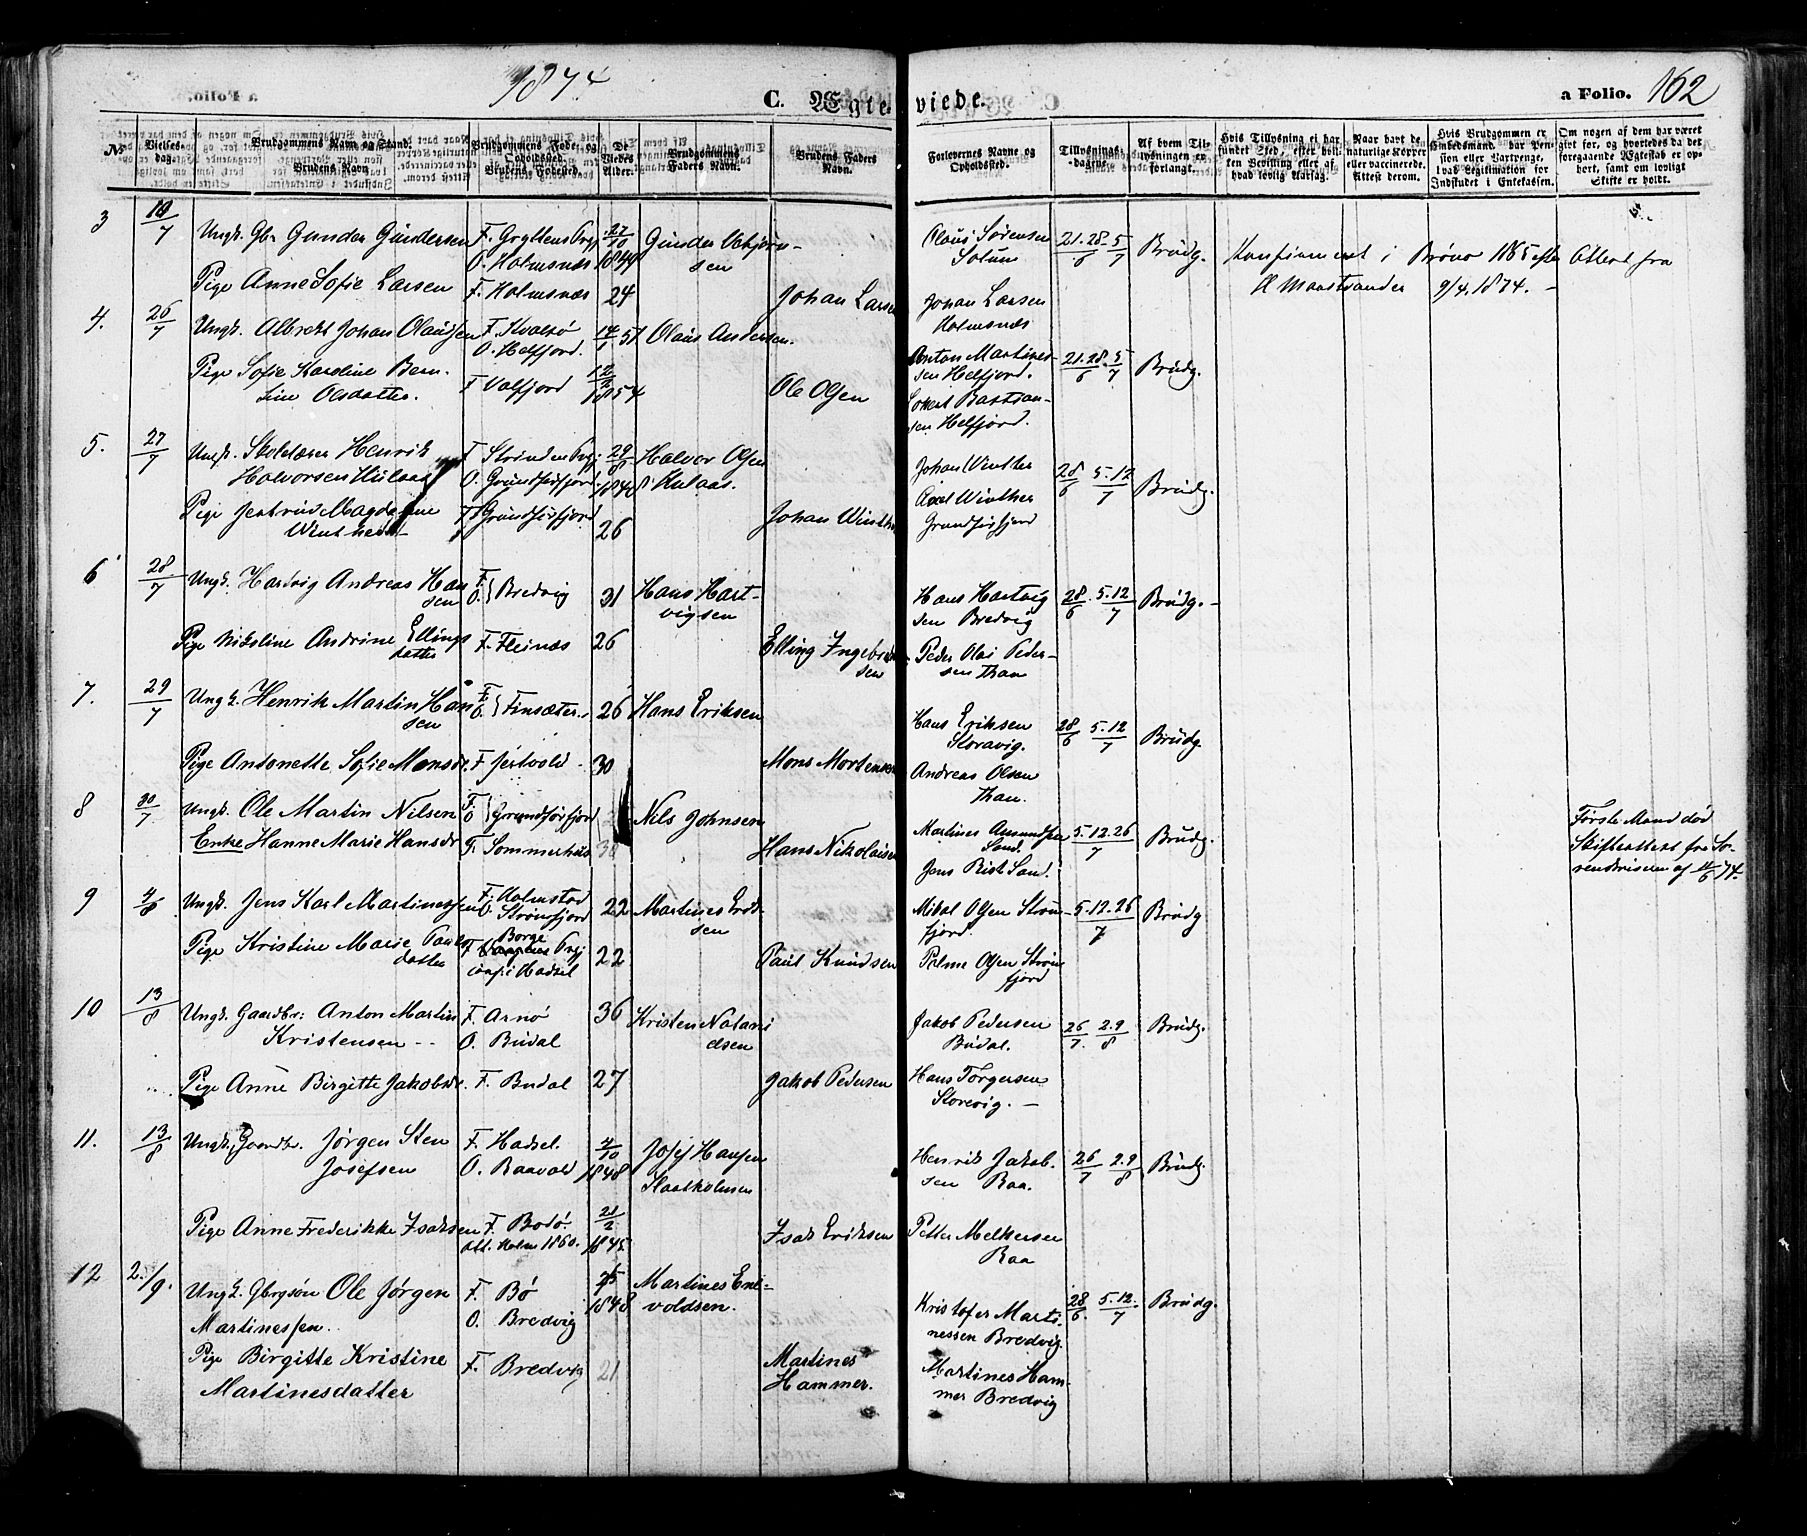 1874
C. Ægteviede.
a Folio. 162
No
Vielses-dag.
Brudgommens Navn og Stand.
Brudens Navn
Brudgommens Fødested og Opholdssted.
Brudens Fødested.
De Viedes Alder.
Brudgommens Faders Navn.
Brudens Faders Navn.
Forlovernes Navne og Opholdssted.
Tillysnings-dagene.
Af hvem Tillysningen er forlangt.
Hvis Tillysning ei har fundet Sted, efter hvilken Bevilling eller af hvad lovlig Aarsag.
Naar havt de naturlige Kopper eller vaccinerede. Attest derom.
Hvis Brudgommen er Embedsmand, har Pension eller Vartpenge, hvad Legitimation for Indskudet i Enkekassen.
Om nogen af dem har været gift før, og hvorledes da det foregaaende Ægteskab er ophørt, samt om lovligt Skifte er holdt.
3 10/7 Ungk. Gbr Gunder Gundersen F. Gryttens Prgj 27/10 Gunder
O. Holmsnæs 1849 sen
Olaus Sørensen 21.28/6 5/7 Brudg. Konfirmeret i Brønø 1865 efter Attest fra
Solum
9/4.1874. -
Pige Anne Sofie Larsen F. Holmsnæs 24 Johan Larsen Johan Larsen
Holmsnæs
4. 26/7 Ungk. Albrekt Johan Olaussen F. Kvalsø 14/1 51 Olaus Andersen.
O. Helfjord.
Anton Martines- 21.28/6 5/7 Brudg.
sen Helfjord.
Pige Sofie Karoline Bern- F Valfjord 12/2 1854 Ole Olsen
sine Olsdatter.
sen Helfjord.
5. 27/7 Ungk. Skolelærer Henrik F Strinden Prgj 29/8 Halvor Olsen
Halvorsen Hulaas O. Grundførfjord 1848 Hulaas.
Johan Winther 28/6 5.12/7 Brudg.
Axel Winther
Grundførfjord
Pige Jertrud Magdalene F. Grundførfjord 26 Johan Winther
Winther
6 28/7 Ungk. Hartvig Andreas Han F. O. Bredvig 31 Hans Hart-
sen vigsen
Hans Hartvig 28/6 5.12/7 Brudg. -
sen Bredvig
Pige Nikoline Andrine Ellings F. Fleinæs 26 Elling Ingebrigt
datter sen
Peder Olai Peder-
sen Than
7. 29/7 Ungk. Henrik Martin Han F. O. Finsæter. 26 Hans Eriksen
sen
Hans Eriksen 28/6 5.12/7 Brudg.
Storavig.
Pige Antonette Sofie Monsdr. F Jertvold. 30 Mons Mortensen
Andreas Olsen
Than.
8 30/7 Ungk. Ole Martin Nilsen F. O Grundførfjord Nils Johnsen
Enke Hanne Marie Hansdr F. Sommerhus Hans Nikolaisen
Martines Amundsen 5.12.26/7 Brudg.
Sand.
Jens Rist Sand.
Første Mand død
Skifteattest fra So-
renskriveren af
9 4/8 Ungk. Jens Karl Martinessen F. Holmstad 22 Martines
O. Strømfjord sen
Mikal Olsen Strøm- 5.12.26/7 Brudg
fjord.
Pige Kristine Marie Pauls F. Borge Prgj 22 Paul Knudsen
datter Hadsel
Palme Olsen Strøm
fjord
10 13/8 Ungk. Gaardbr: Anton Martin F. Arnø 36 Kristen Natani
Kristensen - - O. Budal elsen
Jakob Pedersen 26/7. 2.9/8 Brudg.
Budal.
Pige Anne Birgitte Jakobsdr. F. Budal 27 Jakob Pedersen
Hans Torgersen
Storevig. -
11. 13/8 Ungk. Gaardbr. Jørgen Sten F. Hadsel. 4/10 Josef Hansen
Josefsen O. Raavold 1848 Staatholmen
Henrik Jakob- 26/7 2.9/8 Brudg.
sen Raa.
Pige Anne Frederikke Isaksen F. Bodø. 21/2 Isak Eriksen
1860. 1845
Petter Melkersen
Raa
12 2./9. Ungk. Gbrgsøn Ole Jørgen F. Bø Martines Ene-
Martinessen. O. Bredvig 1848 voldsen.
Kristofer Marti- 28/6. 5.12./7 Brudg.
nessen Bredvig.
Pige Birgitte Kristine F. Bredvig 21 Martines
Martinesdatter Hammer.
Martines Ham-
mer Bredvig